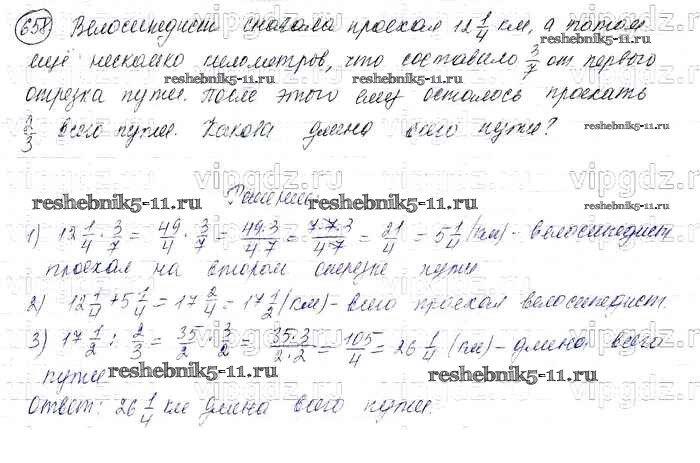 658 Велосипедист сначала проехал 12 1/4 км, а потом
ещё несколько километров, что составило 3/7 от первого
отрезка пути. После этого ему осталось проехать
2/3 всего пути. Какова длина всего пути?
reshebnik5-11.ru
reshebnik5-11.ru
reshebnik5-11.ru
vipgdz.ru
Решение
reshebnik5-11.ru
reshebnik5-11.ru
1) 12 1/4 · 3/7 = 49/4 · 3/7 = 49·3/4·7 = 7·7·3/4·7 = 21/4 = 5 1/4 (км) - велосипедист
проехал на втором отрезке пути
2) 12 1/4 + 5 1/4 = 17 2/4 = 17 1/2 (км) - всего проехал велосипедист.
3) 17 1/2 : 2/3 = 35/2 · 3/2 = 35·3/2·2 = 105/4 = 26 1/4 (км) - длина всего
пути
reshebnik5-11.ru
reshebnik5-11.ru
Ответ: 26 1/4 км длина всего пути.